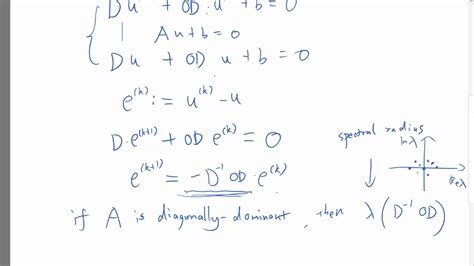 Du + OD · u + b = 0
Au + b = 0
Du + OD u + b = 0
e^(k) := u^(k) - u
D · e^(k+1) + OD e^(k) = 0
spectral radius
Im λ
e^(k+1) = -D^-1 OD · e^(k)
Re λ
if A is diagonally-dominant, then λ(D^-1 OD)